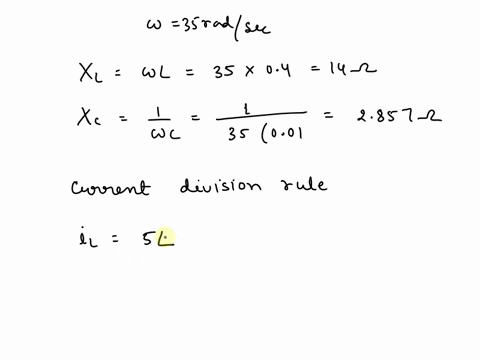 ω = 35 rad/sec
X_L = ωL = 35 × 0.4 = 14 Ω
X_C = 1/ωC = 1/35 (0.01 = 2.857 Ω
current division rule
i_L = 5∠